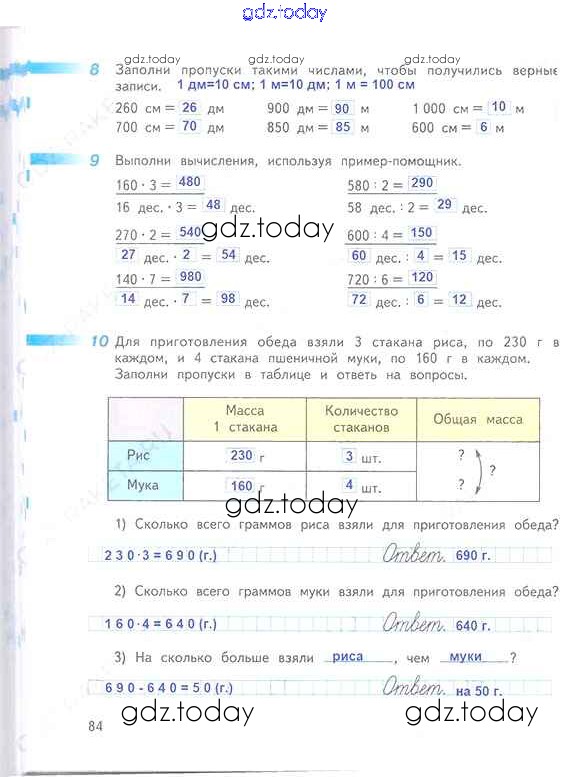 gdz.today
gdz.today gdz.today gdz.today
8 Заполни пропуски такими числами, чтобы получились верные
записи. 1 дм=10 см; 1 м=10 дм; 1 м = 100 см
260 см = 26 дм 900 дм = 90 м 1 000 см = 10 м
700 см = 70 дм 850 дм = 85 м 600 см = 6 м
gdz.today gdz.today gdz.today
9 Выполни вычисления, используя пример-помощник.
160 · 3 = 480 580 : 2 = 290
16 дес. · 3 = 48 дес. 58 дес. : 2 = 29 дес.
gdz.today
270 · 2 = 540 600 : 4 = 150
27 дес. · 2 = 54 дес. 60 дес. : 4 = 15 дес.
140 · 7 = 980 720 : 6 = 120
14 дес. · 7 = 98 дес. 72 дес. : 6 = 12 дес.
10 Для приготовления обеда взяли 3 стакана риса, по 230 г в
каждом, и 4 стакана пшеничной муки, по 160 г в каждом.
Заполни пропуски в таблице и ответь на вопросы.
Масса 1 стакана Количество стаканов Общая масса
Рис 230 г 3 шт. ?
?
Мука 160 г 4 шт. ?
gdz.today
1) Сколько всего граммов риса взяли для приготовления обеда?
230·3=690(г.) Ответ. 690 г.
2) Сколько всего граммов муки взяли для приготовления обеда?
160·4=640(г.) Ответ. 640 г.
3) На сколько больше взяли риса , чем муки ?
690-640=50(г.) Ответ. на 50 г.
gdz.today gdz.today
84